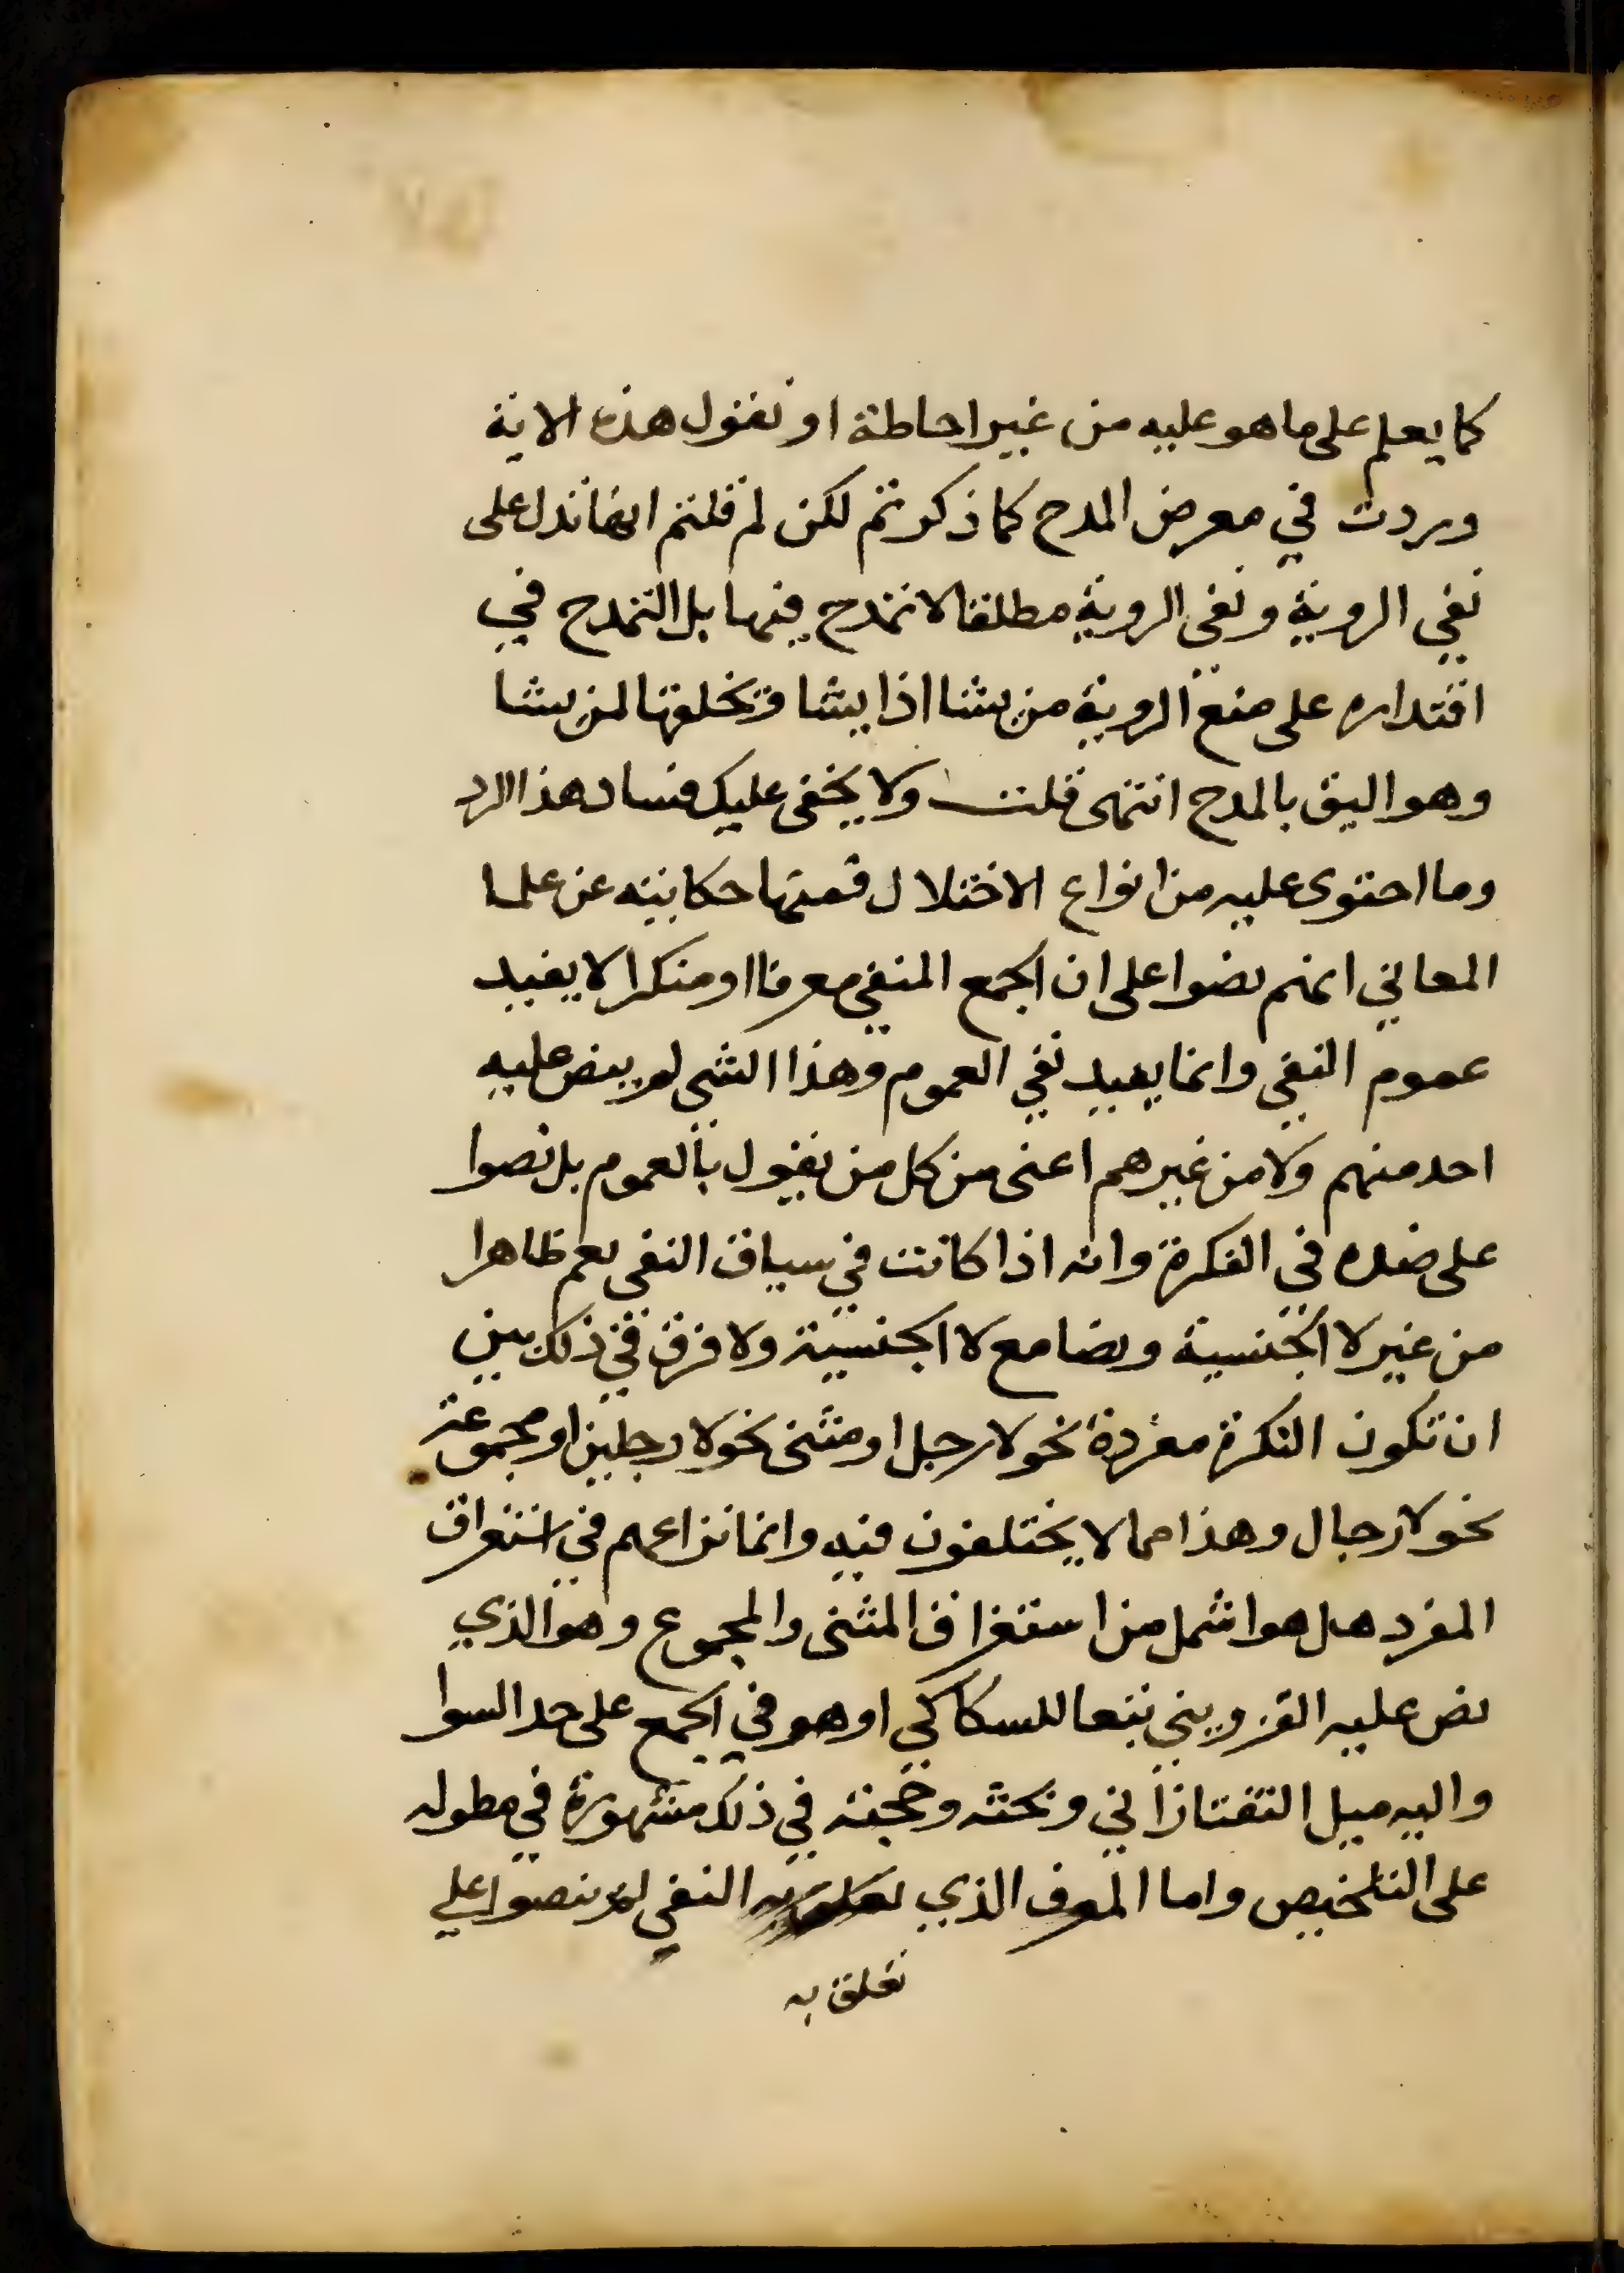 كما يعلم على ما هو عليه من غير احاطة او نقول هذه الاية
وردت في معرض المدح كما ذكرتم لكن لم قلتم انها تدل على
نفي الروية ونفي الروية مطلقا لا تمدح فيها بل التمدح في
اقتداره على منع الروية من يشا اذا يشا وتخلقها لمن يشا
وهو اليق بالمدح انتهى قلت ولا يخفى عليك فساد هذا الرد
وما احتوى عليه من انواع الاختلال فمنها حكايته عن علما
المعاني انهم نصوا على ان الجمع المنفي معرفا او منكرا لا يفيد
عموم النفي وانما يفيد نفي العموم وهذا الشي لم ينص عليه
احد منهم ولا من غيرهم اعنى من كل من يقول بالعموم بل نصوا
على ضده في النكرة وانه اذا كانت في سياق النفي يعم ظاهرا
من غير لا الجنسية ونصا مع لا الجنسية ولا فرق في ذلك بين
ان تكون النكرة مفردة نحو لا رجل او مثنى نحو لا رجلين او مجموعة
نحو لا رجال وهذا مما لا يختلفون فيه وانما نزاعهم في استغراق
المفرد هل هو اشمل من استغراق المثنى والمجموع وهو الذي
نص عليه القزويني تبعا للسكاكي او هو في الجمع على حد السوا
واليه ميل التفتازاني وبحثه وحجته في ذلك مشهورة في مطوله
على التلخيص واما المعرف الذي النفي لم ينصوا على
تعلق به